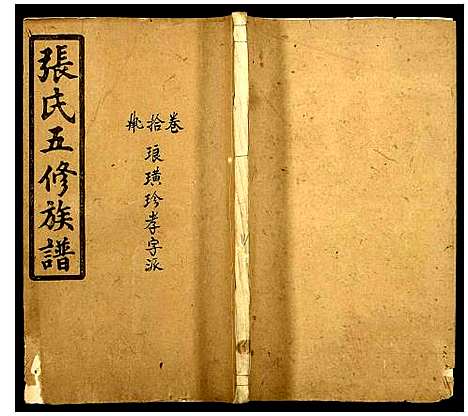 張氏五修族譜
卷拾
琅璜珍孝字派